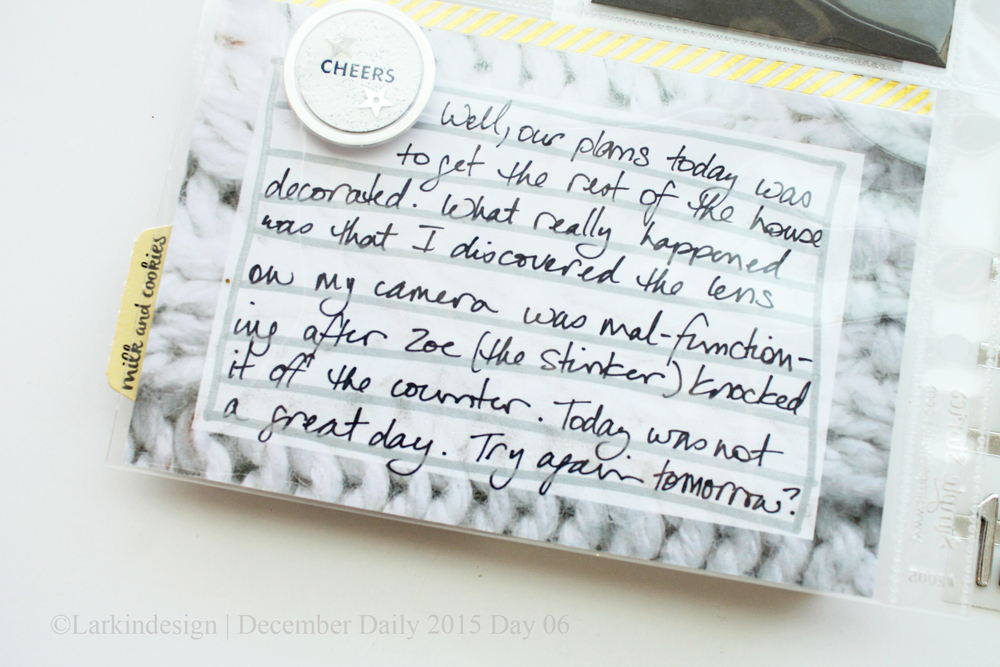 CHEERS
Well, our plans today was
to get the rest of the house
decorated. What really happened
was that I discovered the lens
on my camera was mal-function-
ing after Zoe (the stinker) knocked
it off the counter. Today was not
a great day. Try again tomorrow?
milk and cookies
©Larkindesign | December Daily 2015 Day 06